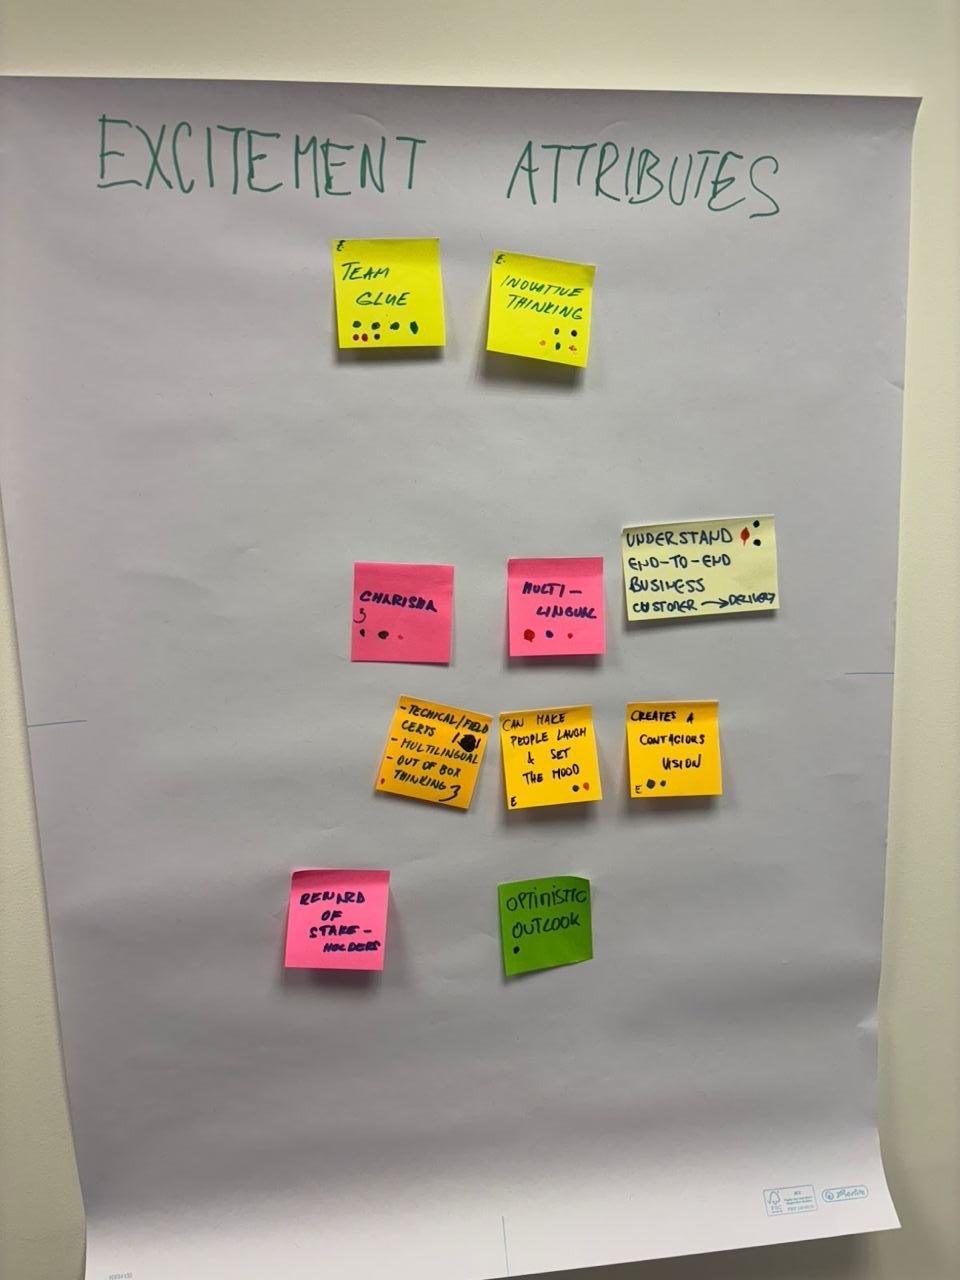 EXCITEMENT ATTRIBUTES
E.
TEAM
GLUE
E.
INOVATIVE
THINKING
UNDERSTAND
END-TO-END
BUSINESS
CUSTOMER → DELIVERY
CHARISMA
3
MULTI-
LINGUAL
- TECHICAL/FIELD
CERTS
- MULTILINGUAL
- OUT OF BOX
THINKING 3
CAN MAKE
PEOPLE LAUGH
& SET
THE MOOD
E
CREATES A
CONTAGIOUS
VISION
E
REWARD
OF
STAKE-
HOLDERS
OPTIMISTIC
OUTLOOK
FSC